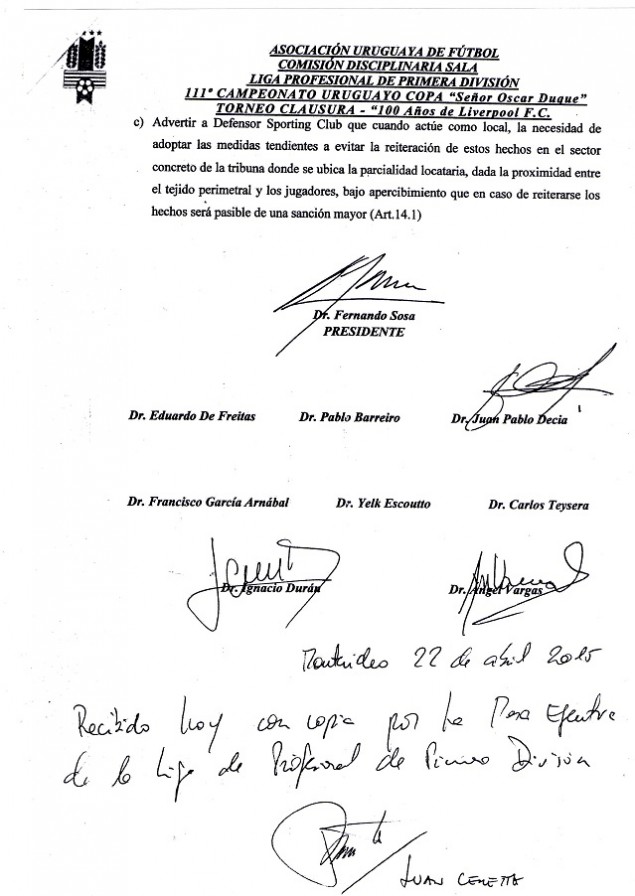 ASOCIACIÓN URUGUAYA DE FÚTBOL
COMISIÓN DISCIPLINARIA SALA
LIGA PROFESIONAL DE PRIMERA DIVISIÓN
111º CAMPEONATO URUGUAYO COPA “Señor Oscar Duque”
TORNEO CLAUSURA - “100 Años de Liverpool F.C.
c) Advertir a Defensor Sporting Club que cuando actúe como local, la necesidad de
adoptar las medidas tendientes a evitar la reiteración de estos hechos en el sector
concreto de la tribuna donde se ubica la parcialidad locataria, dada la proximidad entre
el tejido perimetral y los jugadores, bajo apercibimiento que en caso de reiterarse los
hechos será pasible de una sanción mayor (Art.14.1)
Dr. Fernando Sosa
PRESIDENTE
Dr. Eduardo De Freitas Dr. Pablo Barreiro Dr. Juan Pablo Decia
Dr. Francisco García Arnábal Dr. Yelk Escoutto Dr. Carlos Teysera
Dr. Ignacio Durán Dr. Angel Vargas
Montevideo 22 de abril 2015
Recibido hoy con copia por la Mesa Ejecutiva
de la Liga de Profesional de Primera División
JUAN